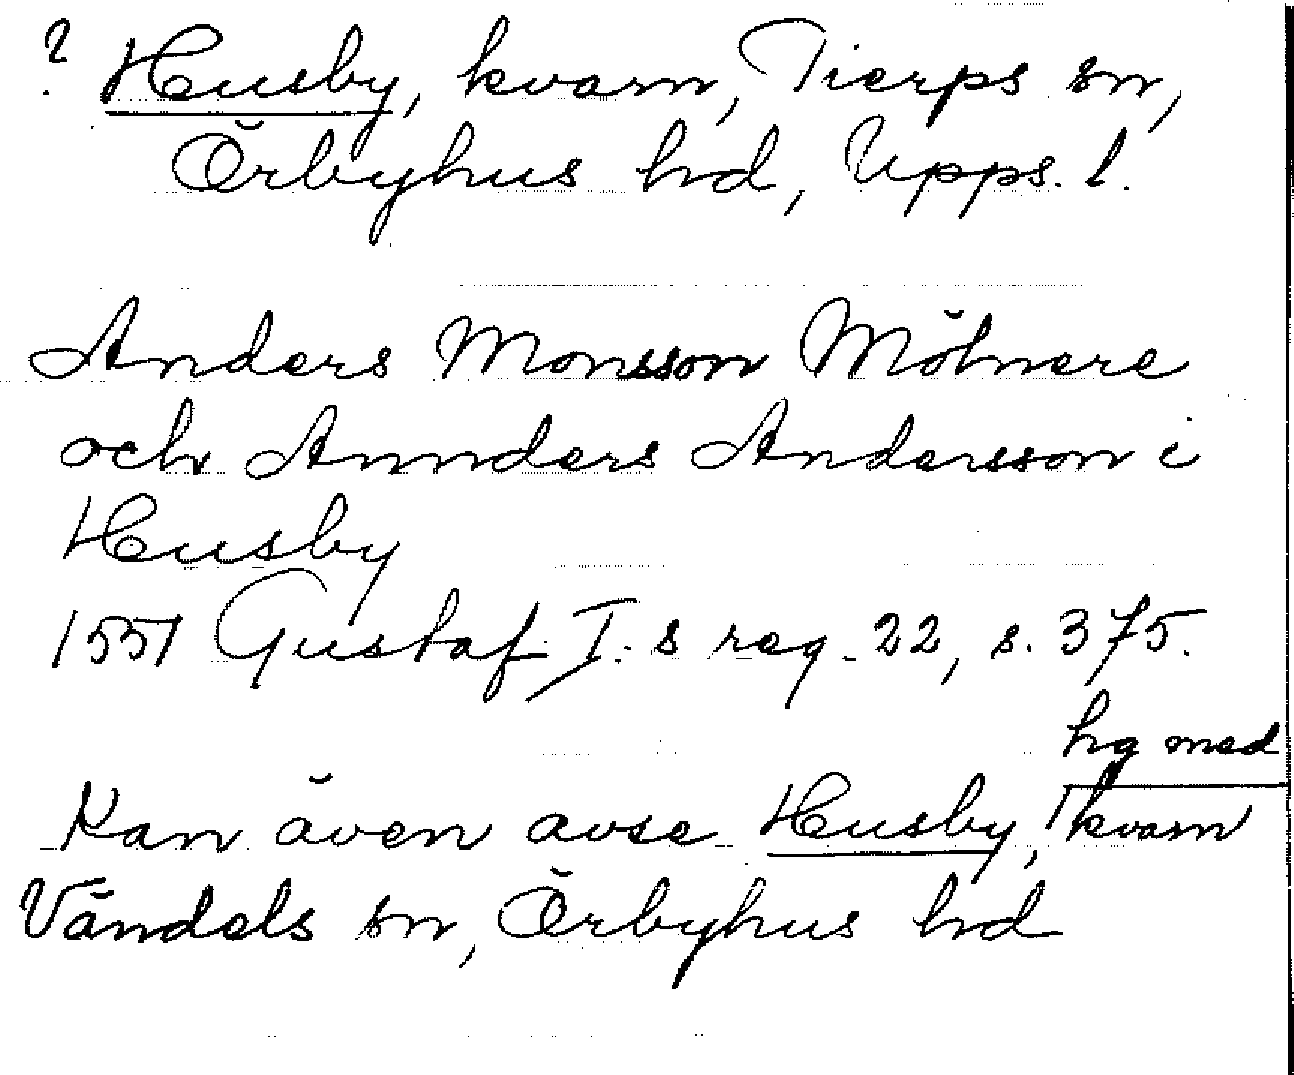 ? Husby, kvarn, Tierps sn,
Örbyhus hd, Upps. l.
Anders Monsson Mölnere
och Annders Andersson i
Husby
1551 Gustaf I:s reg. 22, s. 375.
hg med
Kan även avse Husby, kvarn
Vändels sn, Örbyhus hd